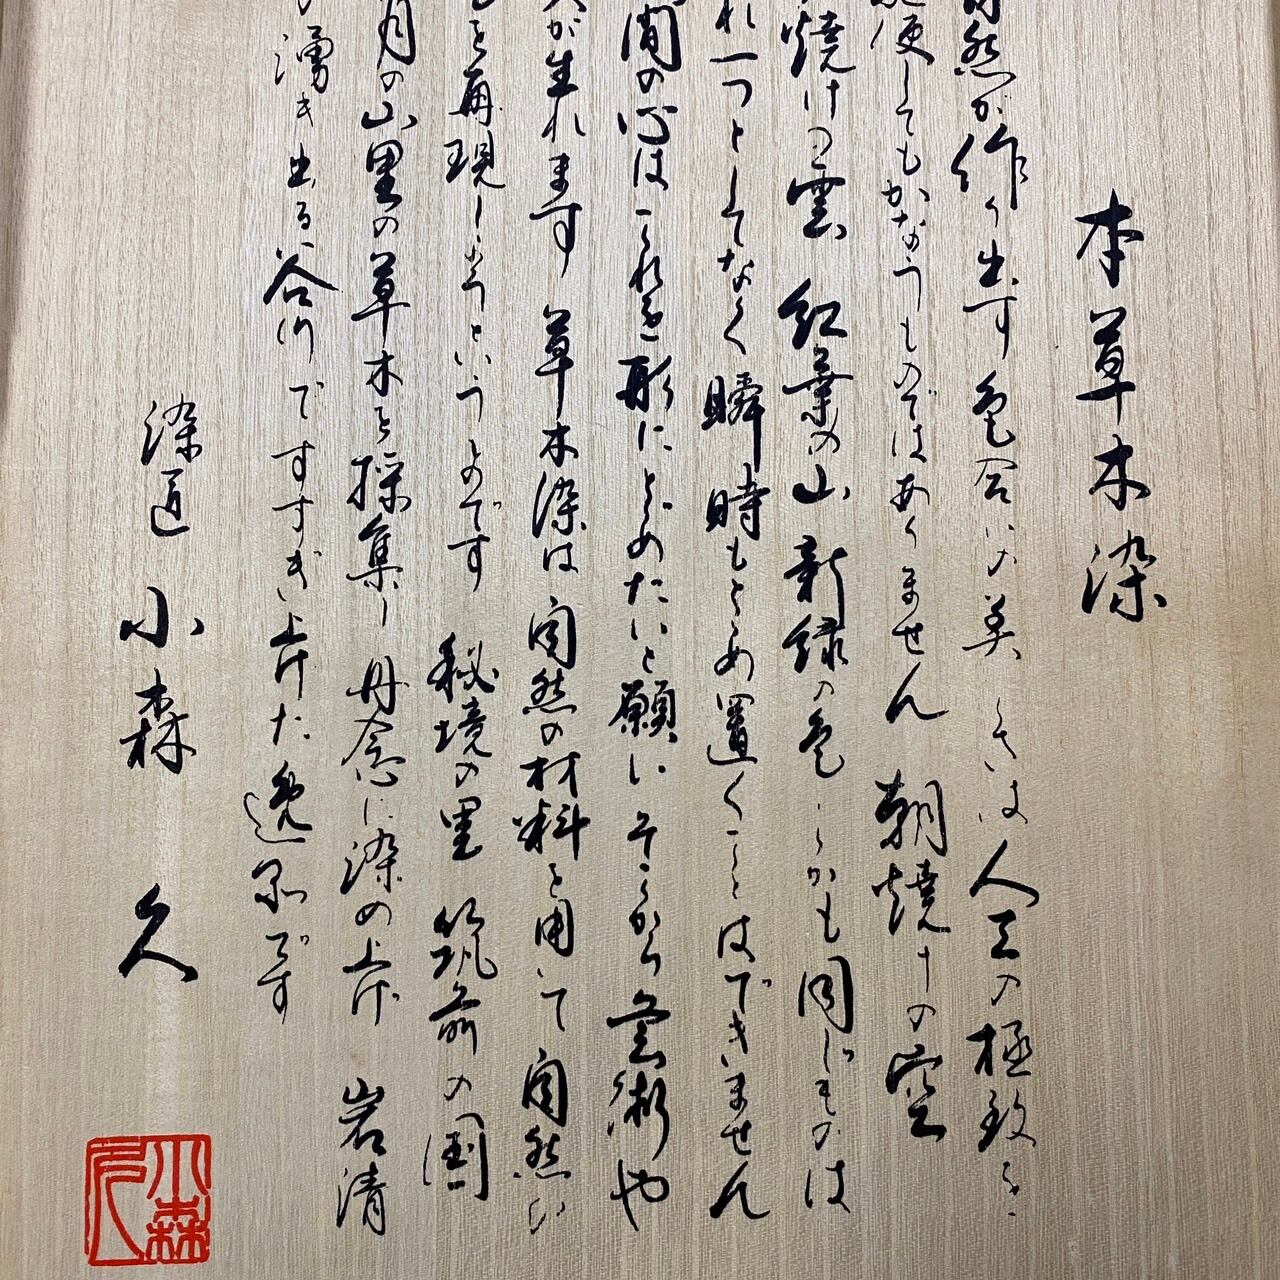 本草木染
自然が作り出す色合いの美しさは人工の極致を
駆使してもかなうものではありません 朝焼けの空
焼けの雲 紅葉の山 新緑の色 しかも同じものは
れ一つとしてなく瞬時もとめ置くことはできません
間の心はこれを形にとどめたいと願い そこから芸術や
が生れます 草木染は自然の材料を用いて自然い
を再現しようというものです 秘境の里 筑前の国
月の山里の草木を採集し丹念に染め上げ 岩清
湧き出る谷川ですすぎ上げた逸品です
染匠 小森 久
小森
久